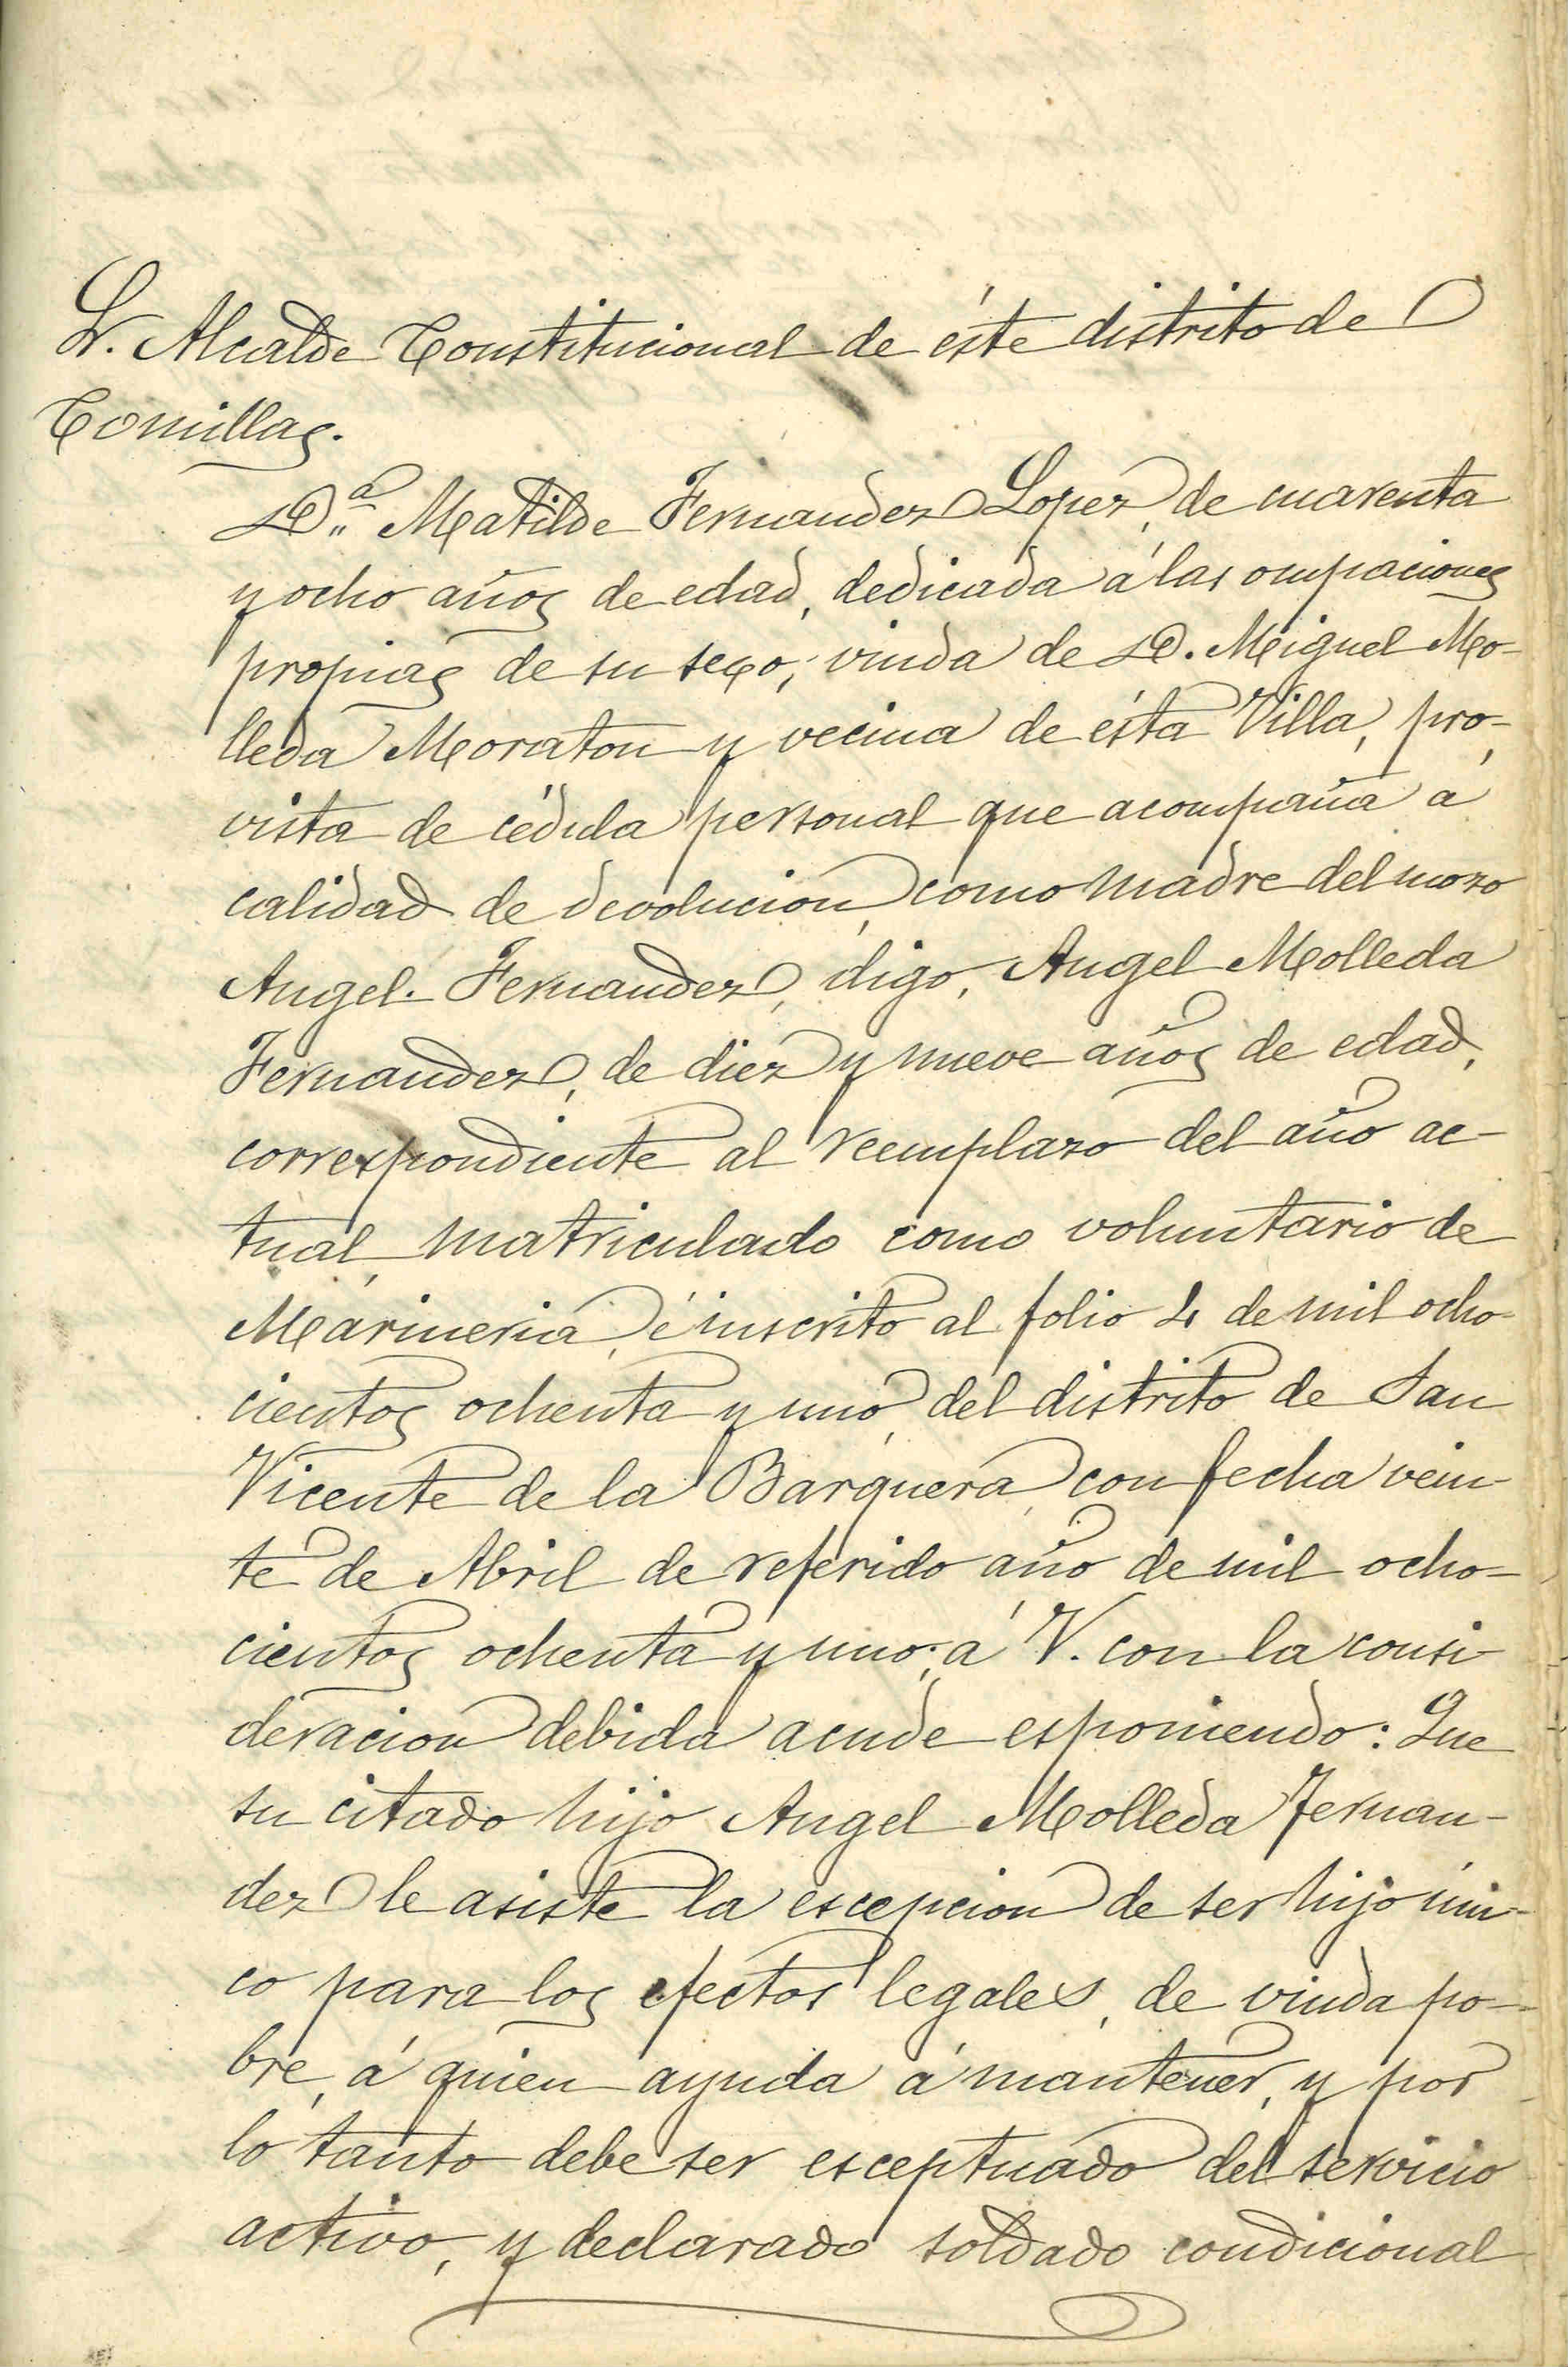 Sr. Alcalde Constitucional de éste distrito de
Comillas.
D.ª Matilde Fernandez Lopez, de cuarenta
y ocho años de edad, dedicada á las ocupaciones
propias de su sexo, viuda de D. Miguel Mo-
lleda Moraton y vecina de ésta Villa, pro-
vista de cédula personal que acompaña á
calidad de devolucion, como madre del mozo
Angel Fernandez, digo, Angel Molleda
Fernandez, de diez y nueve años de edad,
correspondiente al reemplazo del año ac-
tual, matriculado como voluntario de
Marineria, é inscrito al folio 4 de mil ocho-
cientos ochenta y uno, del distrito de San
Vicente de la Barquera, con fecha vein-
te de Abril de referido año de mil ocho-
cientos ochenta y uno; á V. con la consi-
deracion debida acude esponiendo: Que
su citado hijo Angel Molleda Fernan-
dez le asiste la escepcion de ser hijo úni-
co para los efectos legales, de viuda po-
bre, á quien ayuda á mantener, y por
lo tanto debe ser esceptuado del servicio
activo, y declarado soldado condicional